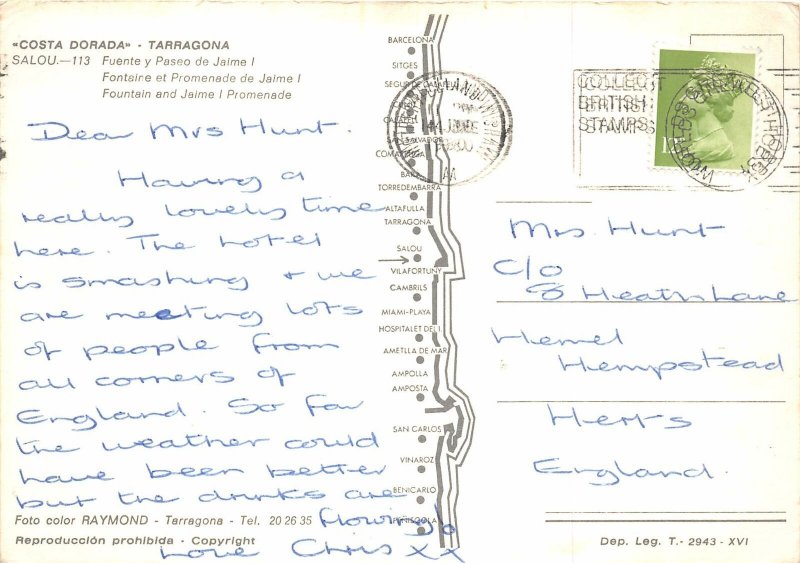 «COSTA DORADA» - TARRAGONA
SALOU.—113 Fuente y Paseo de Jaime I
Fontaine et Promenade de Jaime I
Fountain and Jaime I Promenade
Dear Mrs Hunt.
Having a
really lovely time
here. The hotel
is smashing & we
are meeting lots
of people from
all corners of
England. So far
the weather could
have been better
but the drinks are
flowing
Love Chris xx
Foto color RAYMOND - Tarragona - Tel. 20 26 35
Reproducción prohibida - Copyright
BARCELONA
SITGES
CALAFELL
SAN SALVADOR
TORREDEMBARRA
ALTAFULLA
TARRAGONA
SALOU
VILAFORTUNY
CAMBRILS
MIAMI-PLAYA
HOSPITALET DEL I.
AMETLLA DE MAR
AMPOLLA
AMPOSTA
SAN CARLOS
VINAROZ
BENICARLO
PEÑISCOLA
COLLECT
BRITISH
STAMPS
Mrs. Hunt
c/o
8 Heaths Lane
Hemel
Hempstead
Herts
England.
Dep. Leg. T.- 2943 - XVI